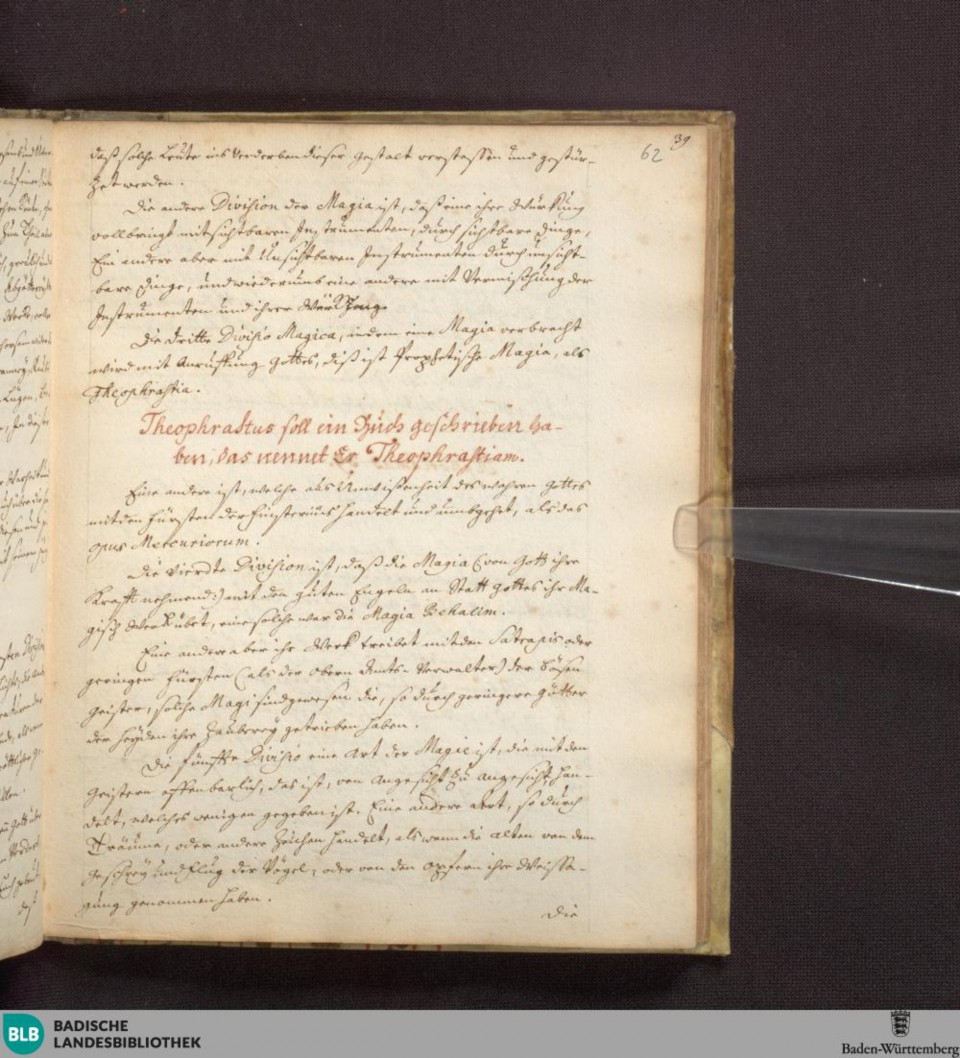 39
62
daß solche Leute ins Verderben dieser gestalt verstossen und gestür-
zet werden.
Die andere Division der Magia ist, daß eine ihre Würkung
vollbringt mit sichtbaren Instrumenten, durch sichtbare Dinge,
Ein andere aber mit Unsichtbaren Instrumenten durch unsicht-
bare Dinge, und wiederumb eine andere mit Vermischung der
Instrumenten und ihrer Würkung.
Die dritte Divisio Magica, indem eine Magia verbracht
wird mit Anruffung Gottes, diß ist Prophetische Magia, als
Theophrastia.
Theophrastus soll ein Buch geschrieben ha-
ben, das nennet Er Theophrastiam.
Eine andere ist, welche aus Unwissenheit des wahren Gottes
mit den Fürsten der Finsternus handelt und umbgehet, als das
opus Mercuriorum.
Die Vierdte Division ist, daß die Magia (von Gott ihre
Krafft nehmend:) mit den guten Engeln an Statt Gottes ihr Ma-
gisch Werk übet, eine solche war die Magia
Eine andere aber ihr Werk treibet mit den Satrapis oder
geringen Fürsten (als der Obern Amts-Verwalter) der Bösen
Geister, solche Magi sind gewesen die, so durch geringere Götter
der Heyden ihre Zauberey getrieben haben.
Die fünffte Divisio eine Art der Magie ist, die mit den
Geistern offenbarlich, das ist, von Angesicht zu Angesicht han-
delt, welches wenigen gegeben ist. Eine andere Art, so durch
Träume, oder andere Zeichen handelt, als wann die Alten von dem
Geschrey und Flug der Vögel, oder von den Opfern ihre Weissa-
gung genommen haben.
Die
BLB
BADISCHE
LANDESBIBLIOTHEK
Baden-Württemberg